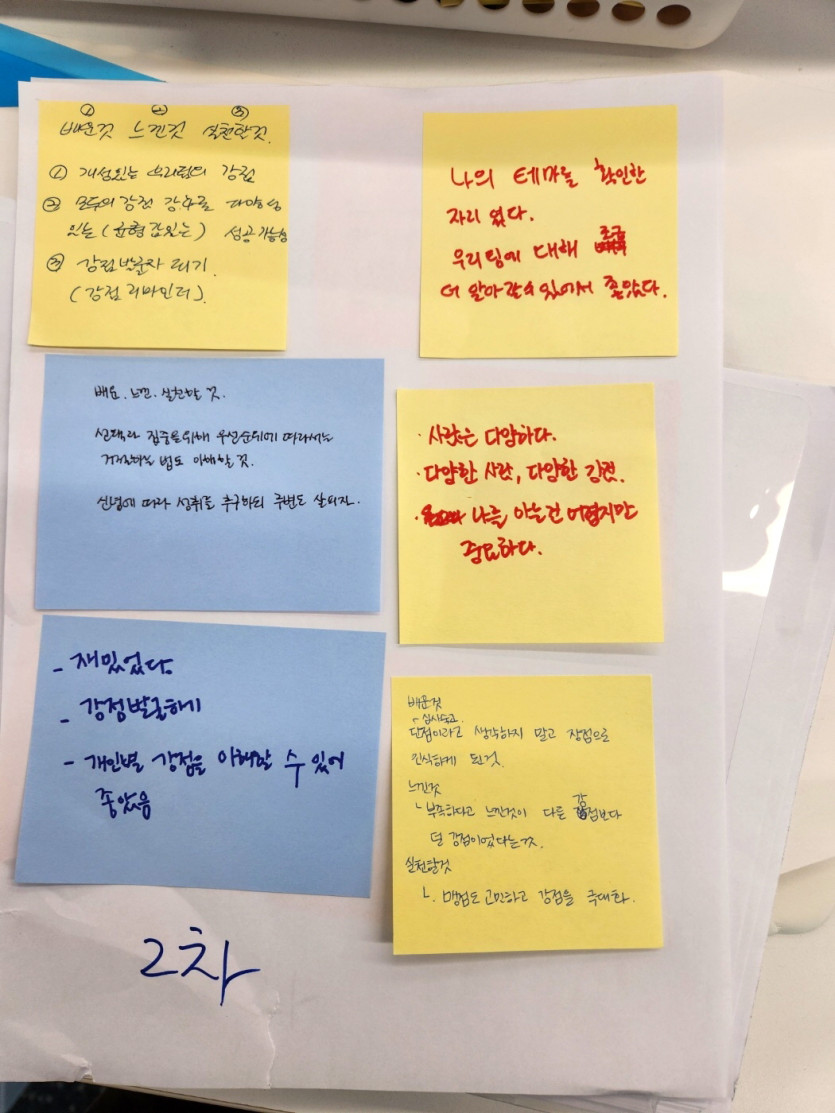 ① ② ③
배운것 느낀것 실천할것.
① 개성있는 우리팀의 강점
② 모두의 강점 강화로 다양성
있는(균형감있는) 성공가능성
③ 강점발굴자 되기.
(강점 리마인더).
나의 테마를 확인한
자리 였다.
우리팀에 대해 조금
더 알아갈수있어서 좋았다.
배운. 느낀. 실천할 것.
선택과 집중을위해 우선순위에 따라서는
거절하는 법도 이해할 것.
신념에 따라 성취를 추구하되 주변도 살피자.
· 사람은 다양하다.
· 다양한 사람, 다양한 강점.
· 나를 아는건 어렵지만
중요하다.
- 재밌었다
- 강점발굴하기
- 개인별 강점을 이해할 수 있어
좋았음
배운것
단점이라고 생각하지 말고 장점으로
인식하게 된것.
느낀것
ㄴ부족하다고 느낀것이 다른 강점보다
덜 강점이었다는것.
실천할것
ㄴ. 맹점도 고민하고 강점을 극대화.
2차